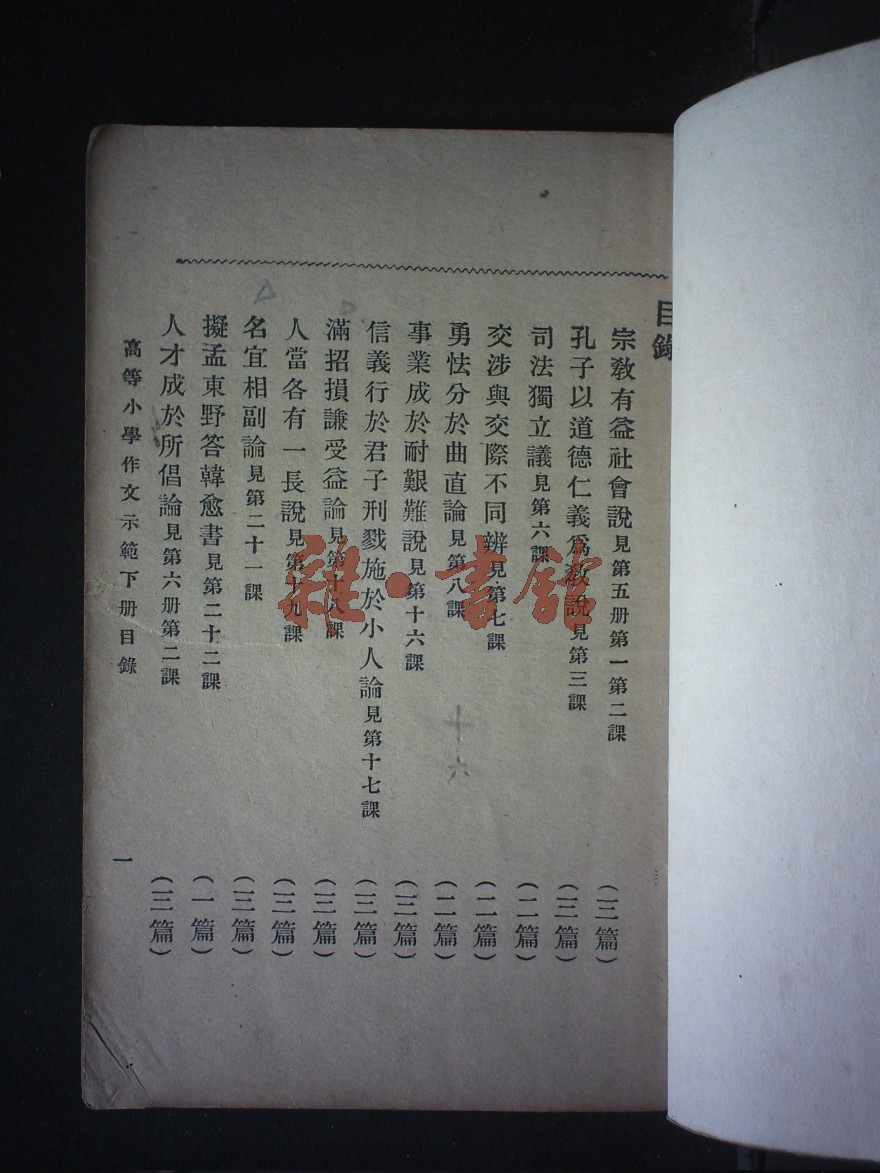 目錄
宗教有益社會說見第五册第一第二課（三篇）
孔子以道德仁義爲教說見第三課（三篇）
司法獨立議見第六課（二篇）
交涉與交際不同辨見第七課（二篇）
勇怯分於曲直論見第八課（二篇）
事業成於耐艱難說見第十六課（三篇）
信義行於君子刑戮施於小人論見第十七課（三篇）
滿招損謙受益論見第十八課（三篇）
人當各有一長說見第十九課（三篇）
名宜相副論見第二十一課（三篇）
擬孟東野答韓愈書見第二十二課（一篇）
人才成於所倡論見第六册第二課（三篇）
高等小學作文示範下册目錄
一
十六
雜·書館